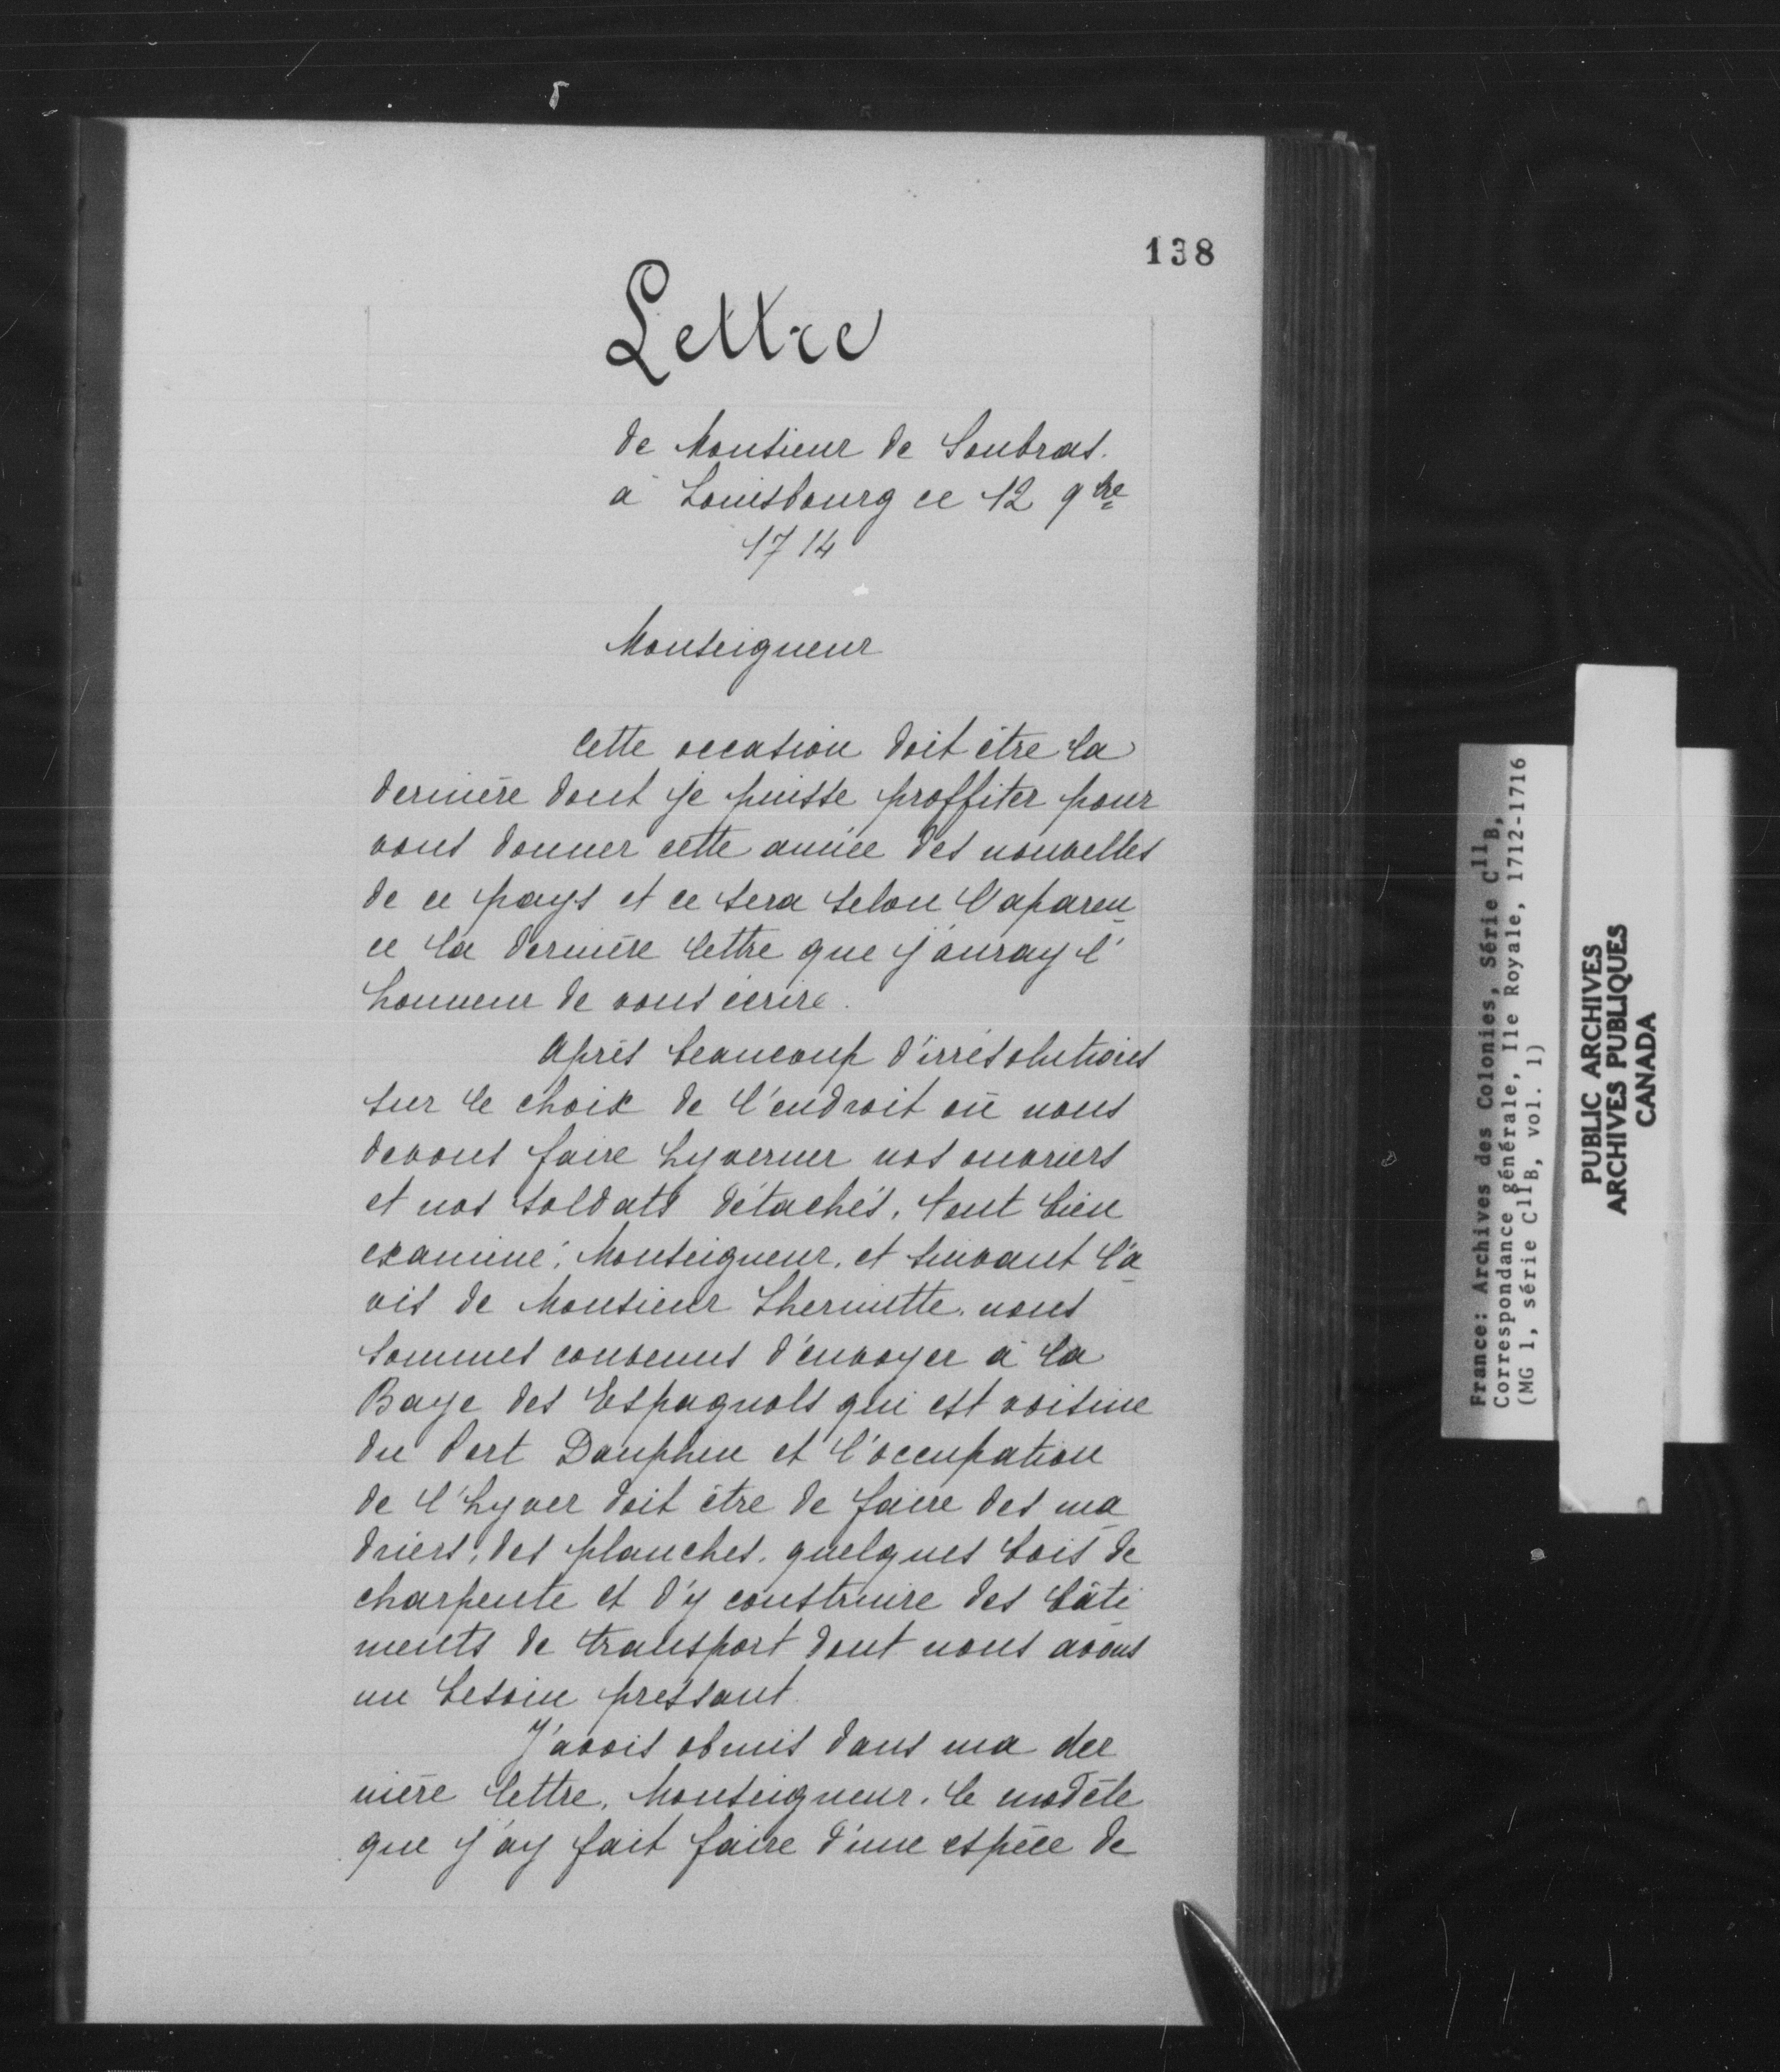 138
Lettre
de Monsieur de Soubras.
à Louisbourg ce 12 9bre
1714
Monseigneur
Cette occasion doit être la
dernière dont je puisse proffiter pour
vous donner cette année des nouvelles
de ce pays et ce sera selon l'aparen
ce la dernière lettre que j'auray l'
honneur de vous écrire.
Après beaucoup d'irrésolutions
sur le choix de l'endroit où nous
devons faire hyverner nos ouvriers
et nos soldats détachés, tout bien
examiné, Monseigneur, et suivant l'a
vis de Monsieur Lhermitte, nous
sommes convenus d'envoyer à la
Baye des Espagnols qui est voisine
du Port Dauphin et l'occupation
de l'hyver doit être de faire des ma
driers, des planches, quelques bois de
charpente et d'y construire des bâti
ments de transport dont nous avons
un besoin pressant.
J'avois obmis dans ma der
nière lettre, Monseigneur, le modèle
que j'ay fait faire d'une espèce de
France: Archives des Colonies, Série C11B,
Correspondance générale, Ile Royale, 1712-1716
(MG 1, série C11B, vol. 1)
PUBLIC ARCHIVES
ARCHIVES PUBLIQUES
CANADA